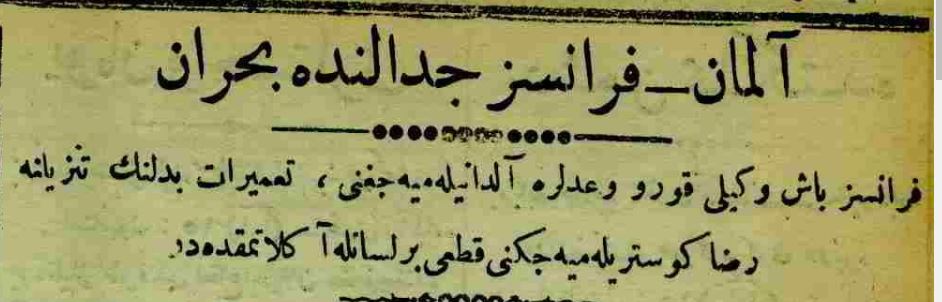 آلمان – فرانسز جدالنده بحران
فرانسز باش وكیلی قورو وعدلره آلدانیله‌میه‌جغنی ، تعمیرات بدلنك تنزیلنه
رضا كوستریله‌میه‌جكنی قطعی بر لسانله آكلاتمقده‌در.